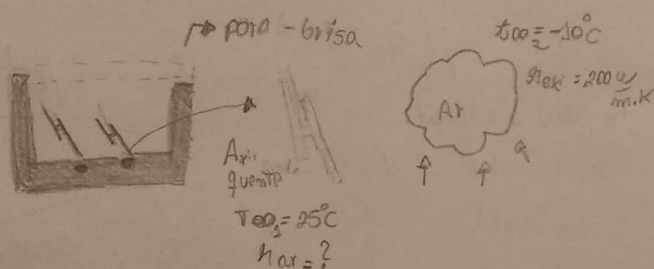 para-brisa
t∞₂ = -10°C
hex = 200 w/m.K
Ar
quente
T∞₁ = 25°C
har = ?